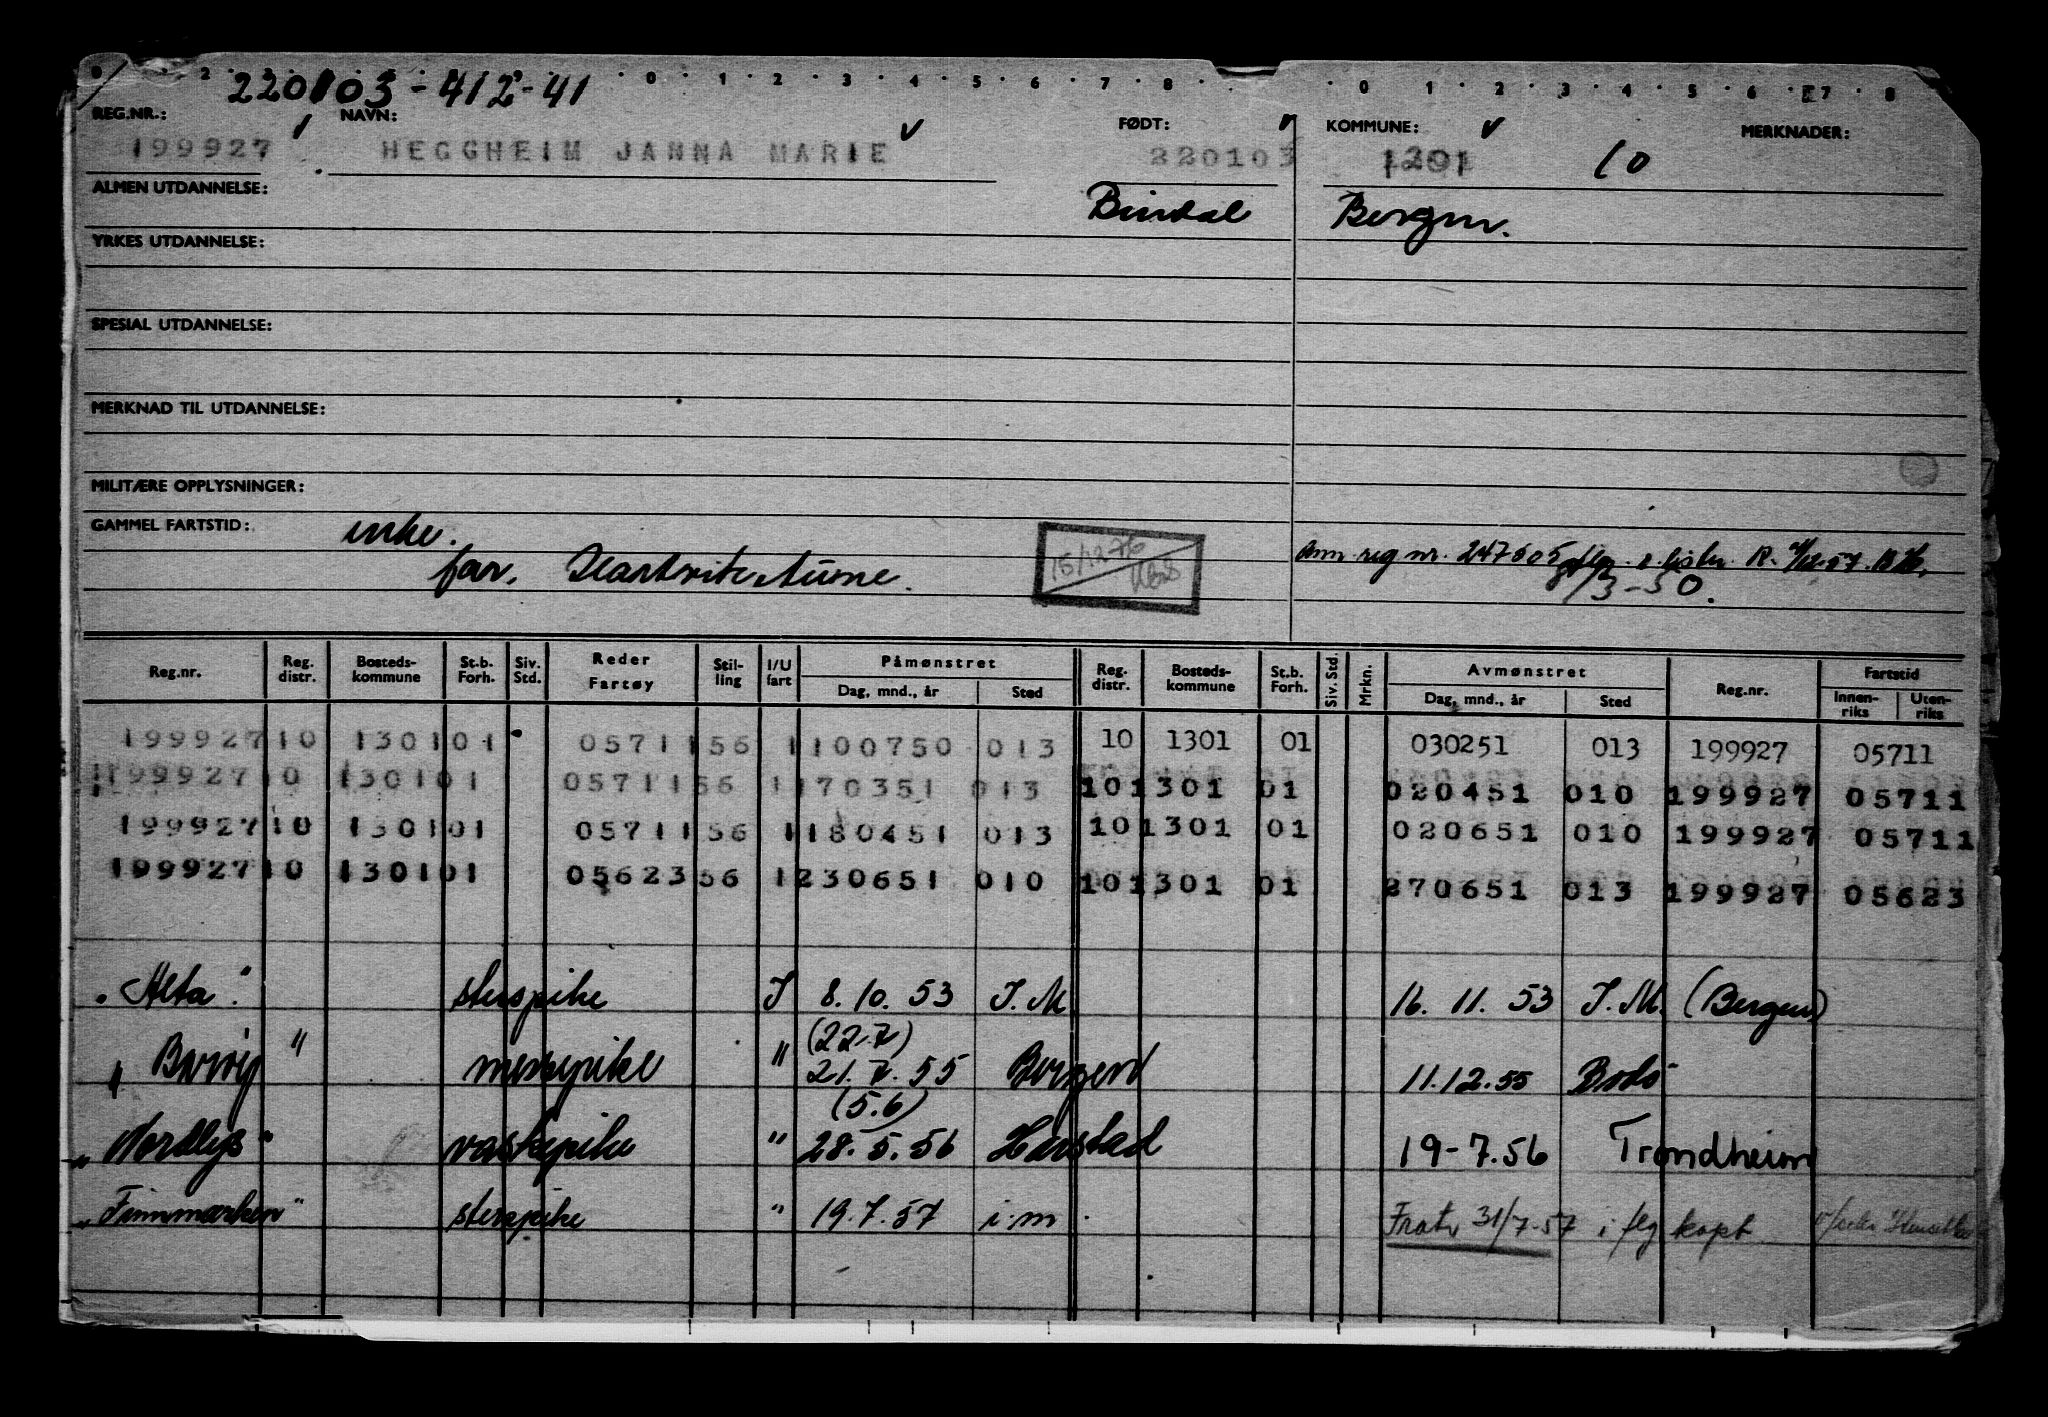 220103-412-41
REG.NR.: NAVN: FØDT: KOMMUNE: MERKNADER:
199927 HEGGHEIM JANNA MARIE 220103 1201 10
ALMEN UTDANNELSE: Bindal Bergen.
YRKES UTDANNELSE:
SPESIAL UTDANNELSE:
MERKNAD TIL UTDANNELSE:
MILITÆRE OPPLYSNINGER:
GAMMEL FARTSTID: enke.
far. Aune.
15/12-76
reg nr. 247505
/3-50.
Reg.nr. Reg. distr. Bosteds-kommune St.b. Forh. Siv. Std. Reder Fartøy Stil-ling I/U fart Påmønstret Reg. distr. Bosteds-kommune St.b. Forh. Siv. Std. Mrkn. Avmønstret Reg.nr. Fartstid
Dag, mnd., år Sted Dag, mnd., år Sted Innen-riks Uten-riks
199927 10 1301 01 05711 56 1 100750 013 10 1301 01 030251 013 199927 05711
199927 10 1301 01 05711 56 1 170351 013 10 1301 01 020451 010 199927 05711
199927 10 1301 01 05711 56 1 180451 013 10 1301 01 020651 010 199927 05711
199927 10 1301 01 05623 56 1 230651 010 10 1301 01 270651 013 199927 05623
"Alta". I 8.10.53 I.M 16.11.53 I.M. (Bergen)
(22.7)
" " messepike " 21.7.55 Bergen 11.12.55 Bodø
(5.6)
"Nordlys" vaskepike " 28.5.56 Harstad 19-7.56 Trondheim
"Finnmarken" " 19.7.57 i.m. Fratr 31/7-57 i flg kapt